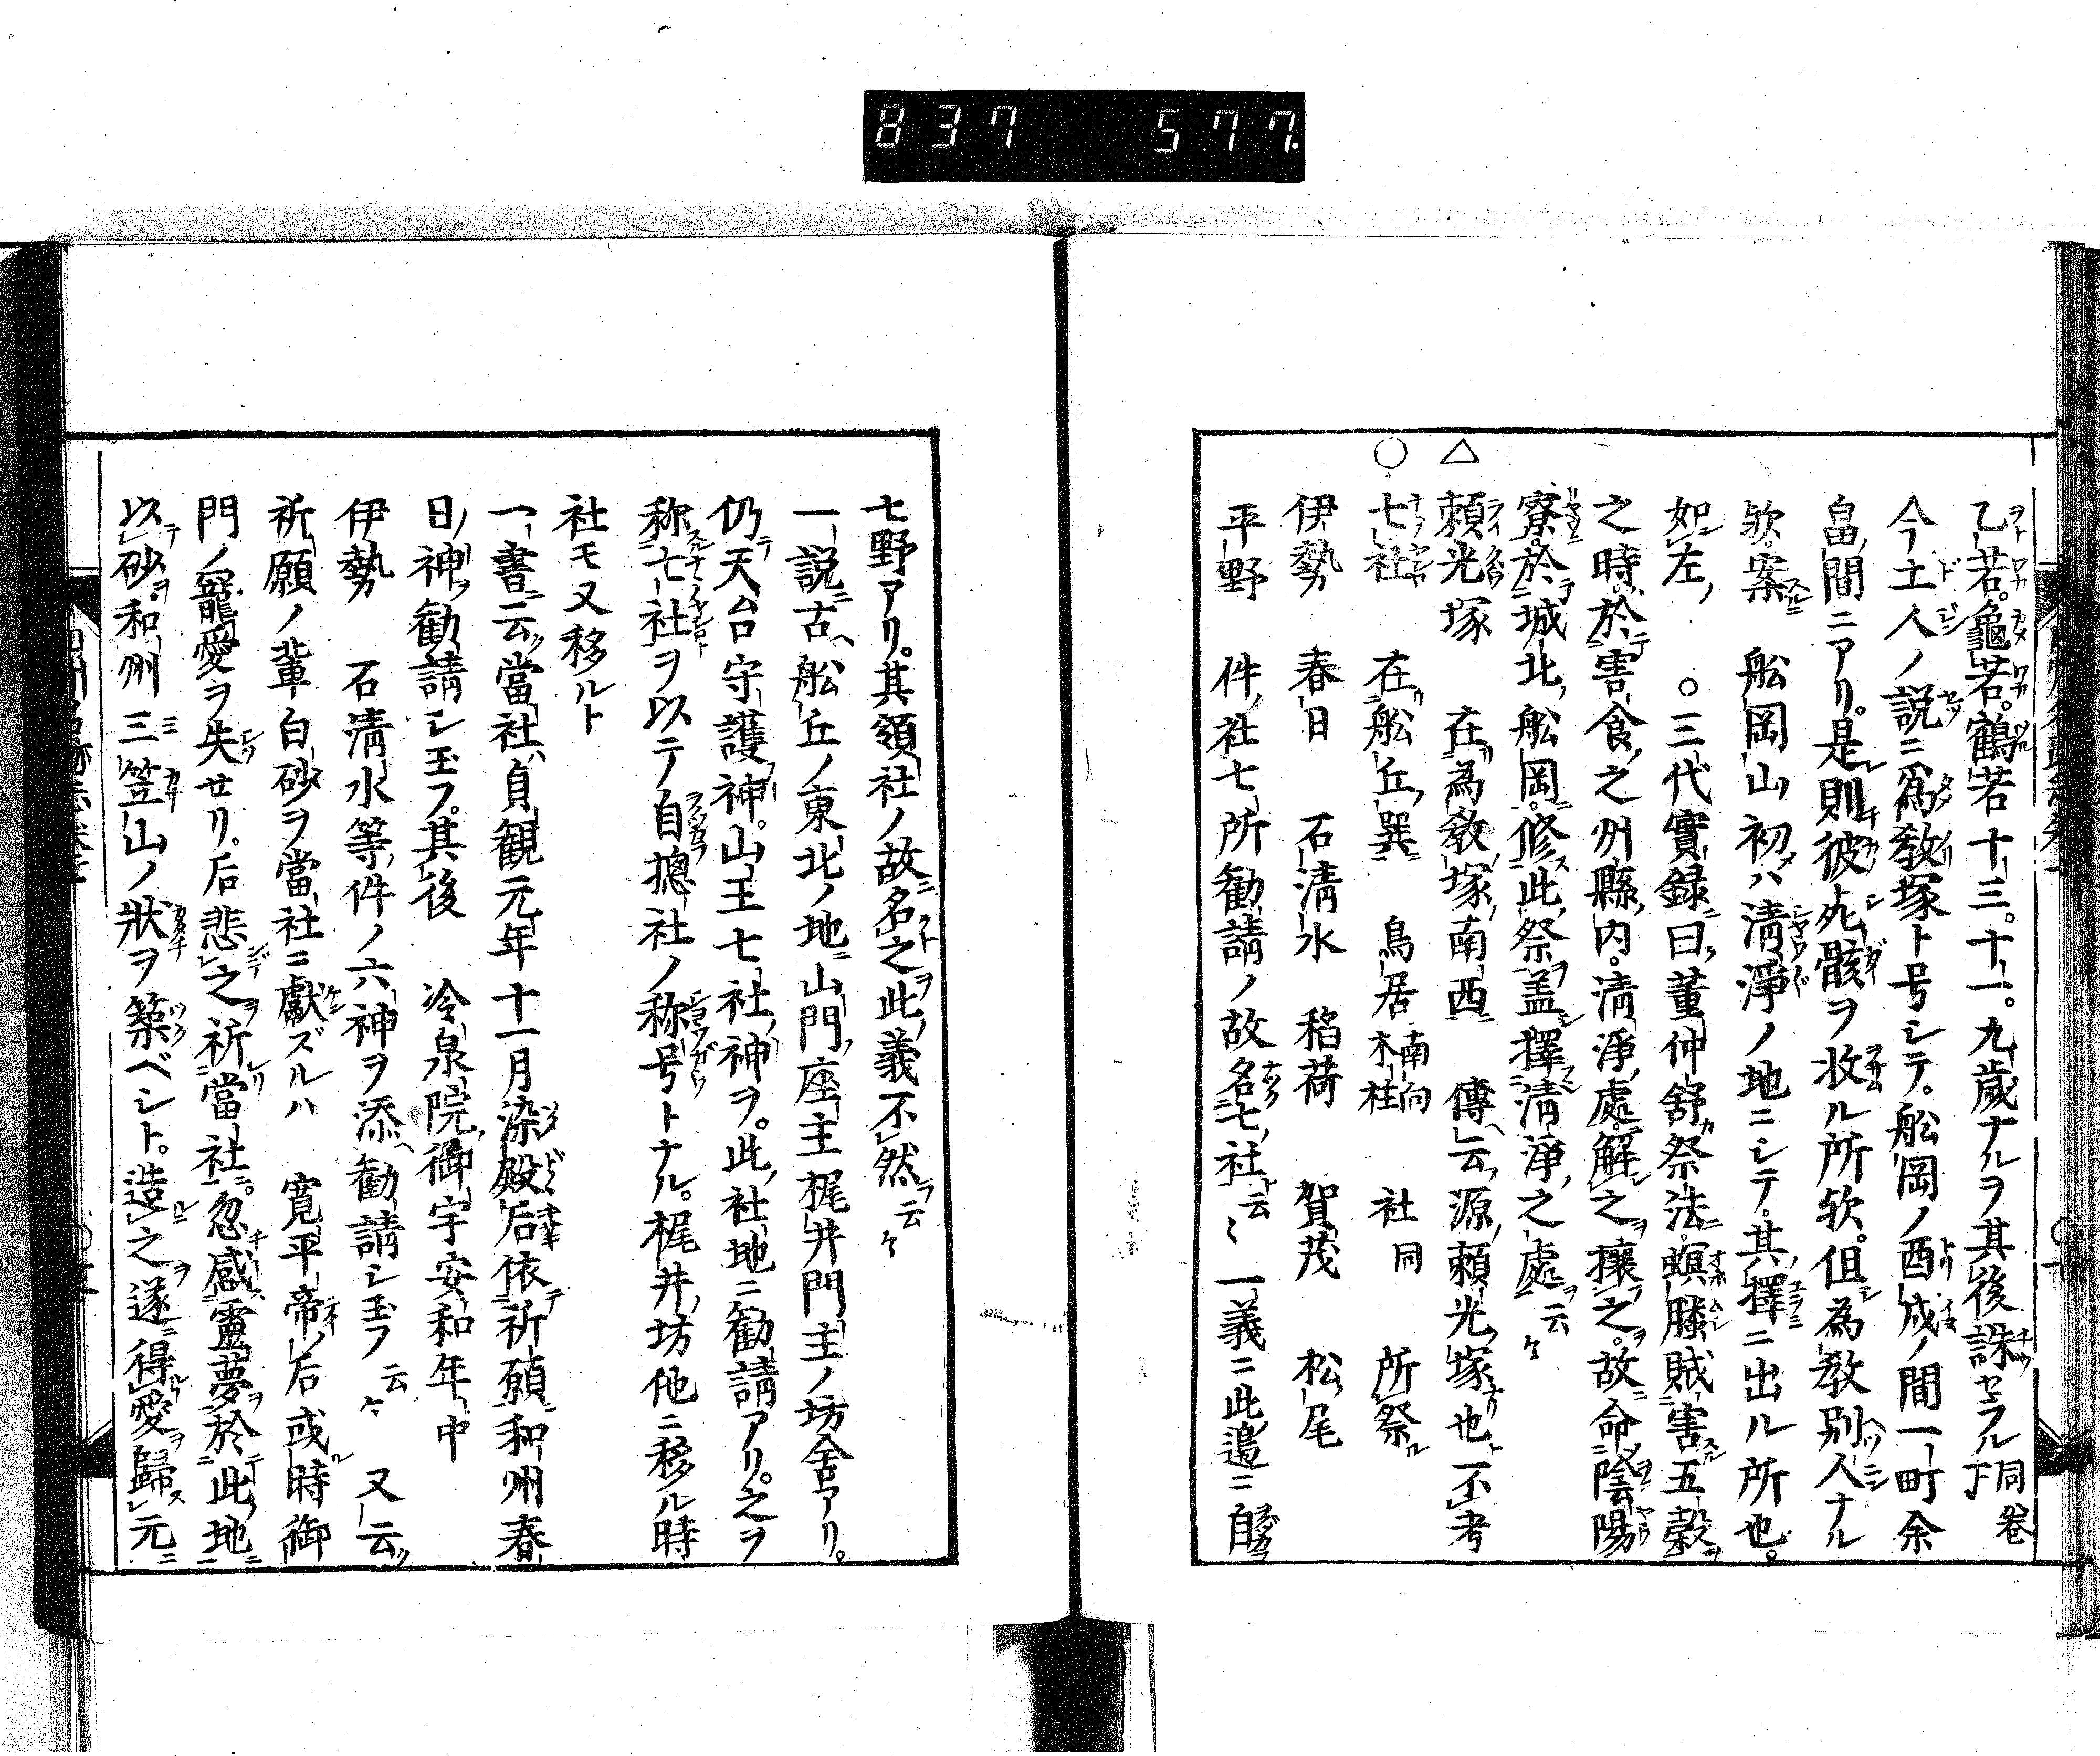 837 5.77.
乙若。龜若。鶴若十三。十一。九歲ナルヲ其後誅セラル同卷下
今土人ノ説ニ爲教塚ト号シテ。舩岡ノ酉戌ノ間一町余
畠間ニアリ。是則彼死骸ヲ收ル所欤。但為教別人ナル
欤。案スルニ 舩岡山初メハ清淨ノ地ニシテ。其擇ニ出ル所也。
如左 。三代實録曰董仲舒祭法螟螣賊害五穀
之時於害食之州縣内。清淨處解之攘之。故命陰陽
寮。於城北舩岡修此祭盖擇清淨之處云々
△頼光塚 在為教塚南西 傳云源頼光塚也不考
○七社 在舩丘巽 鳥居南向木柱 社同 所祭
伊勢 春日 石清水 稲荷 賀茂 松尾
平野 件社七所勧請ノ故名七社云々 一義ニ此邉ニ自
七野アリ。其領社ノ故名之此義不然云々
一説古舩丘ノ東北ノ地山門座主梶井門主ノ坊舎アリ。
仍天台守護神。山王七社神ヲ。此社地ニ勧請アリ。之ヲ
称七社ヲ以テ自摠社ノ称号トナル。梶井坊他ニ移ル時
社モ又移ルト
一書云當社貞観元年十一月染殿后依祈願和州春
日神勧請シ玉フ。其後 冷泉院御宇安和年中
伊勢 石清水等件ノ六神ヲ添勧請シ玉フ云々 又云
祈願ノ輩白砂ヲ當社ニ獻ズルハ 寛平帝ノ后或時御
門ノ寵愛ヲ失セリ。后悲之祈當社。忽感靈夢於此地
以砂。和州三笠山ノ狀ヲ築ベシト。造之遂得愛歸元